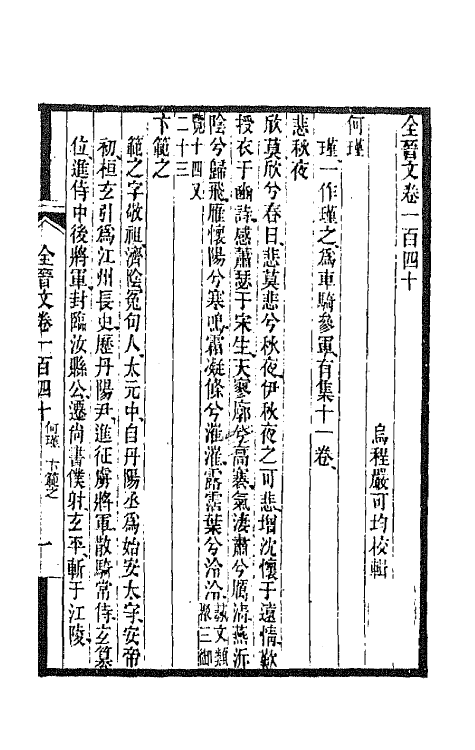 全晉文卷一百四十
烏程嚴可均校輯
何瑾
瑾一作瑾之爲車騎參軍有集十一卷
悲秋夜
欣莫欣兮春日悲莫悲兮秋夜伊秋夜之可悲增沈懷于遠情歎
授衣于豳詩感蕭瑟于宋生天寥廓兮高褰氣凄肅兮厲清燕泝
陰兮歸飛雁懷陽兮寒鳴霜凝條兮漼漼露霑葉兮泠泠藝文類
聚三御
覽十四又
二十三
卞範之
範之字敬祖濟陰冤句人太元中自丹陽丞爲始安太守安帝
初桓玄引爲江州長史歷丹陽尹進征虜將軍散騎常侍玄篡
位進侍中後將軍封臨汝縣公遷尚書僕射玄平斬于江陵
全晉文卷一百四十 何瑾 卞範之 一